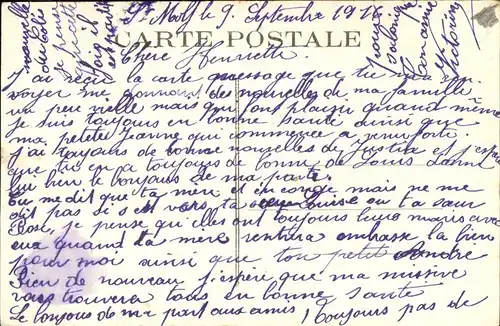 St Molf le 9 Septembre 1916
CARTE POSTALE
Chère Henriette
J'ai reçu la carte message que tu
voyer me donnant des nouvelles de ma famille
un peu vielle mais qui font plaisir quand même
je suis toujours en bonne santé ainsi que
ma petite Jeanne qui commence a
j'ai toujours de bonne nouvelles de et j'espère
que tu en a toujours de bonne de Louis donne
lui bien le bonjours de ma part.
Tu me dit que ta mère et mais ne me
dit pas si s'est vers ta ou ta sœur
Rose, je pense qu'elles ont toujours leurs maris avec
eux quand ta mère rentrera embrasse la bien
pour moi ainsi que ton petit André
Rien de nouveau j'espère que ma missive
vous trouvera tous en bonne santé
Le bonjours de ma part aux amis, toujours pas de
nouvelle
de
je pense
quand
il
pour
Ton amie
Victorine